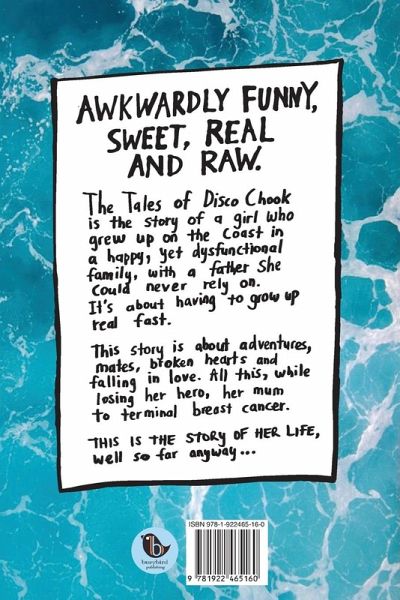 AWKWARDLY FUNNY,
SWEET, REAL
AND RAW.
The Tales of Disco Chook
is the story of a girl who
grew up on the Coast in
a happy, yet dysfunctional
family, with a father she
could never rely on.
It's about having to grow up
real fast.
This story is about adventures,
mates, broken hearts and
falling in love. All this, while
losing her hero, her mum
to terminal breast cancer.
THIS IS THE STORY OF HER LIFE,
well so far anyway...
ISBN 978-1-922465-16-0
b
busybird
publishing
9 781922 465160